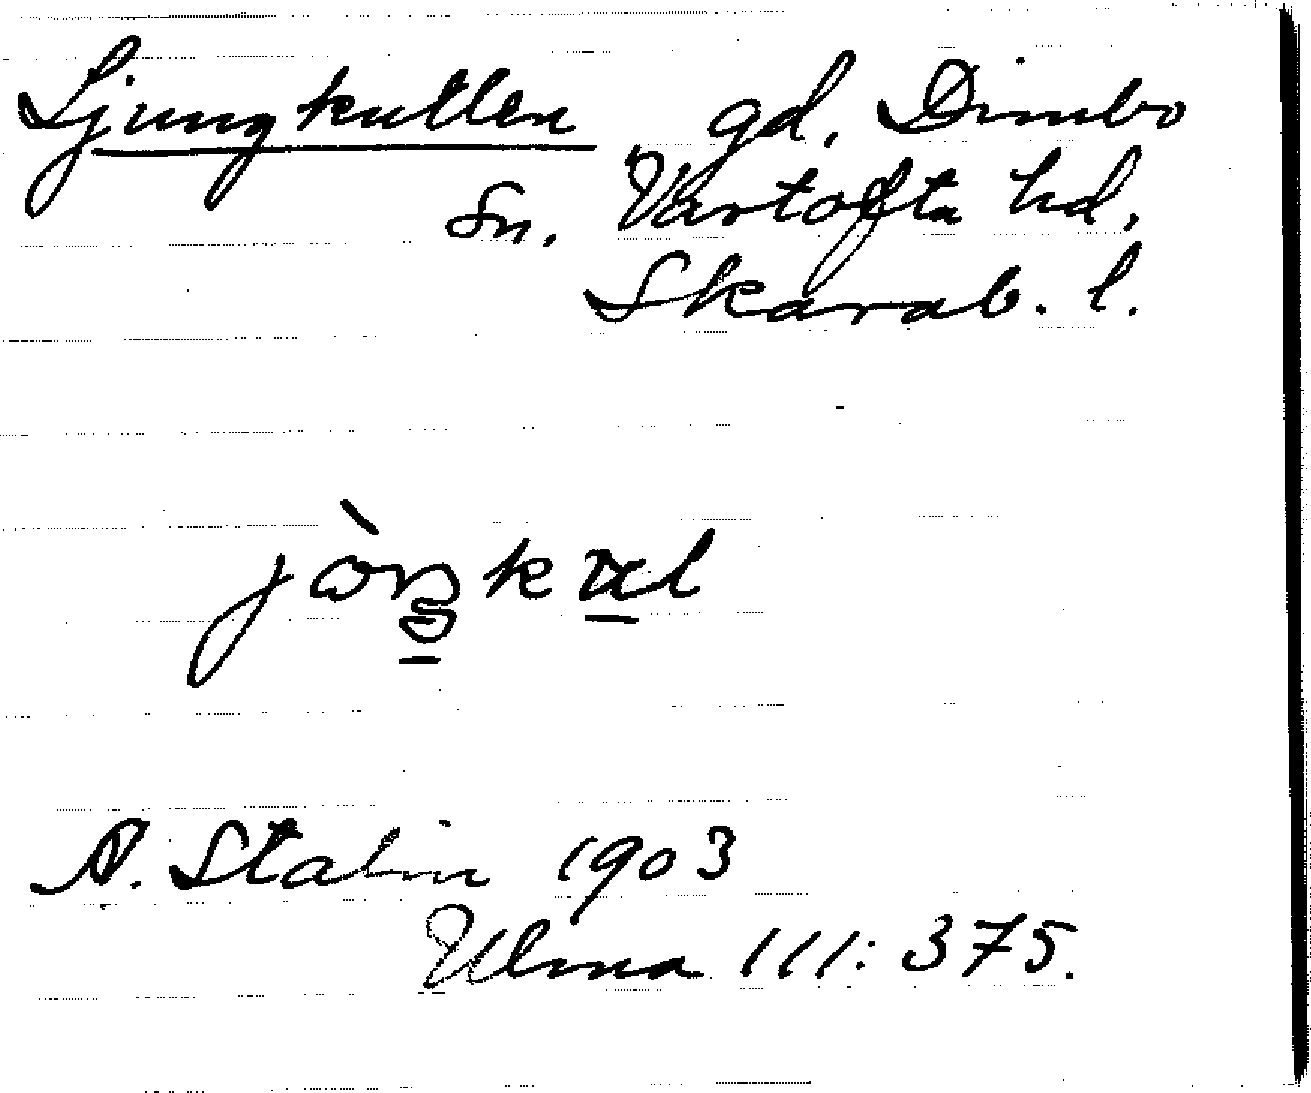 Ljungkullen gd. Dimbo
Sn. Vartofta hd.
Skarab. l.
A. Stalin 1903
Ulma 111: 375.